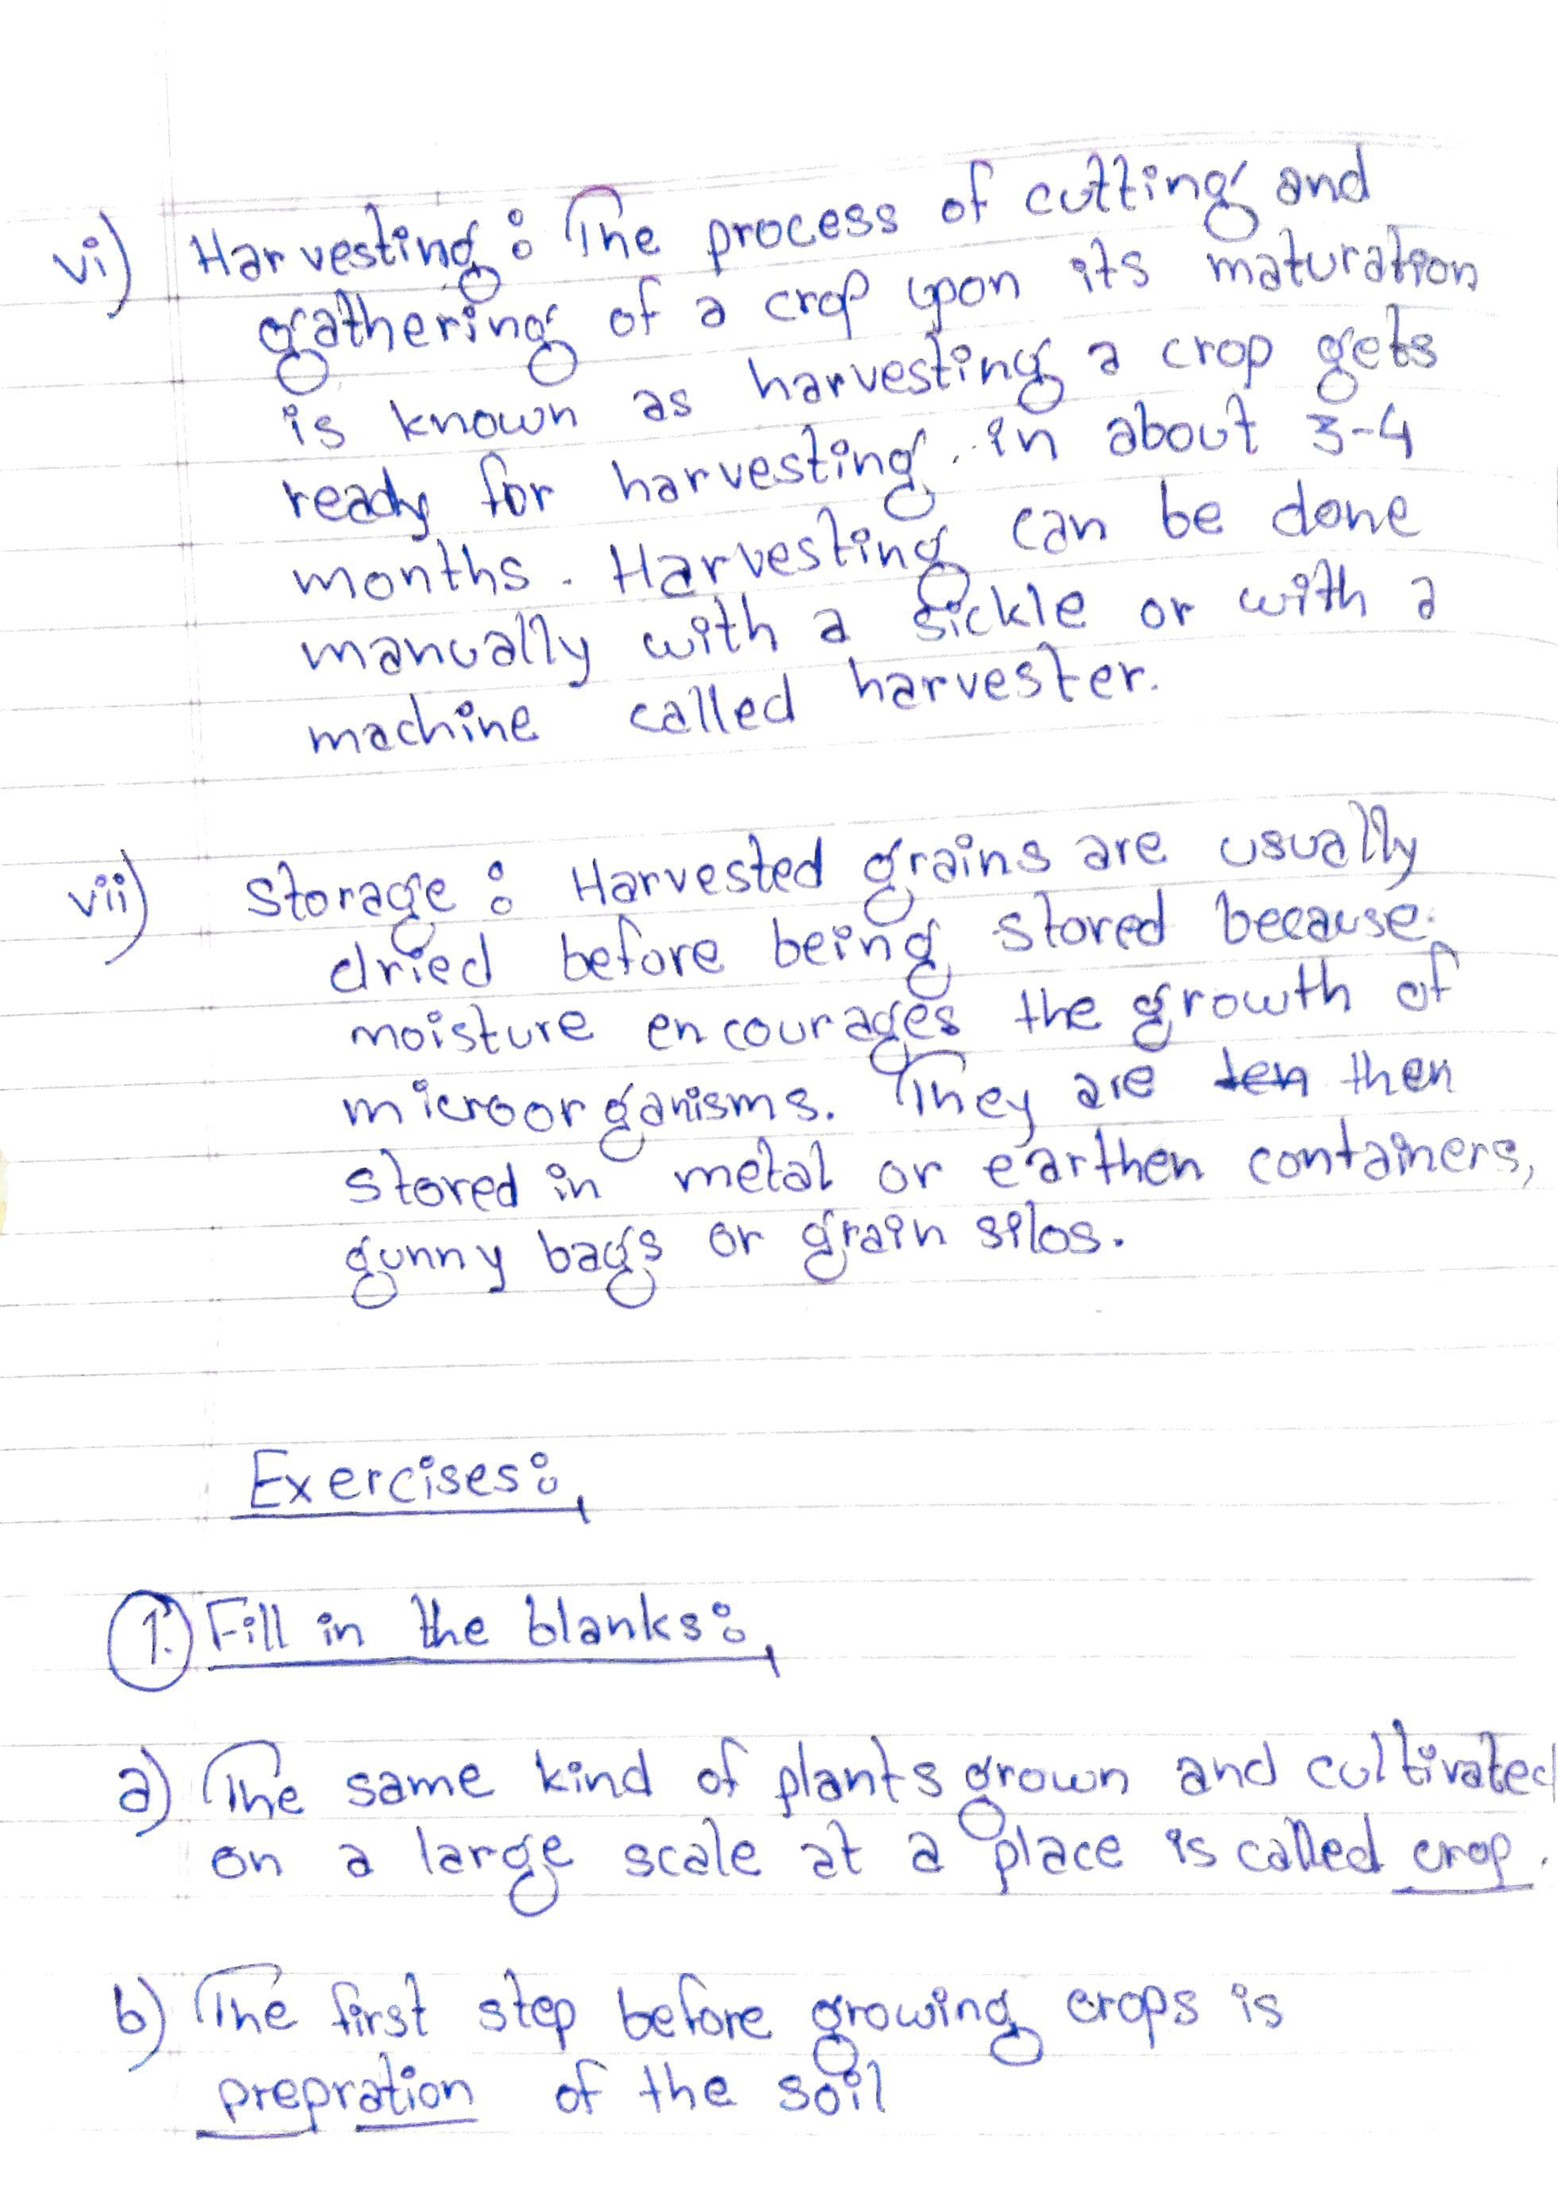 vi) Harvesting : The process of cutting and
gathering of a crop upon its maturation
is known as harvesting a crop gets
ready for harvesting. in about 3-4
months. Harvesting can be done
manually with a sickle or with a
machine called harvester.
vii) Storage : Harvested grains are usually
dried before being stored because
moisture encourages the growth of
microorganisms. They are ten then
stored in metal or earthen containers,
gunny bags or grain silos.
Exercises:
1. Fill in the blanks:
a) The same kind of plants grown and cultivated
on a large scale at a place is called crop.
b) The first step before growing crops is
prepration of the soil